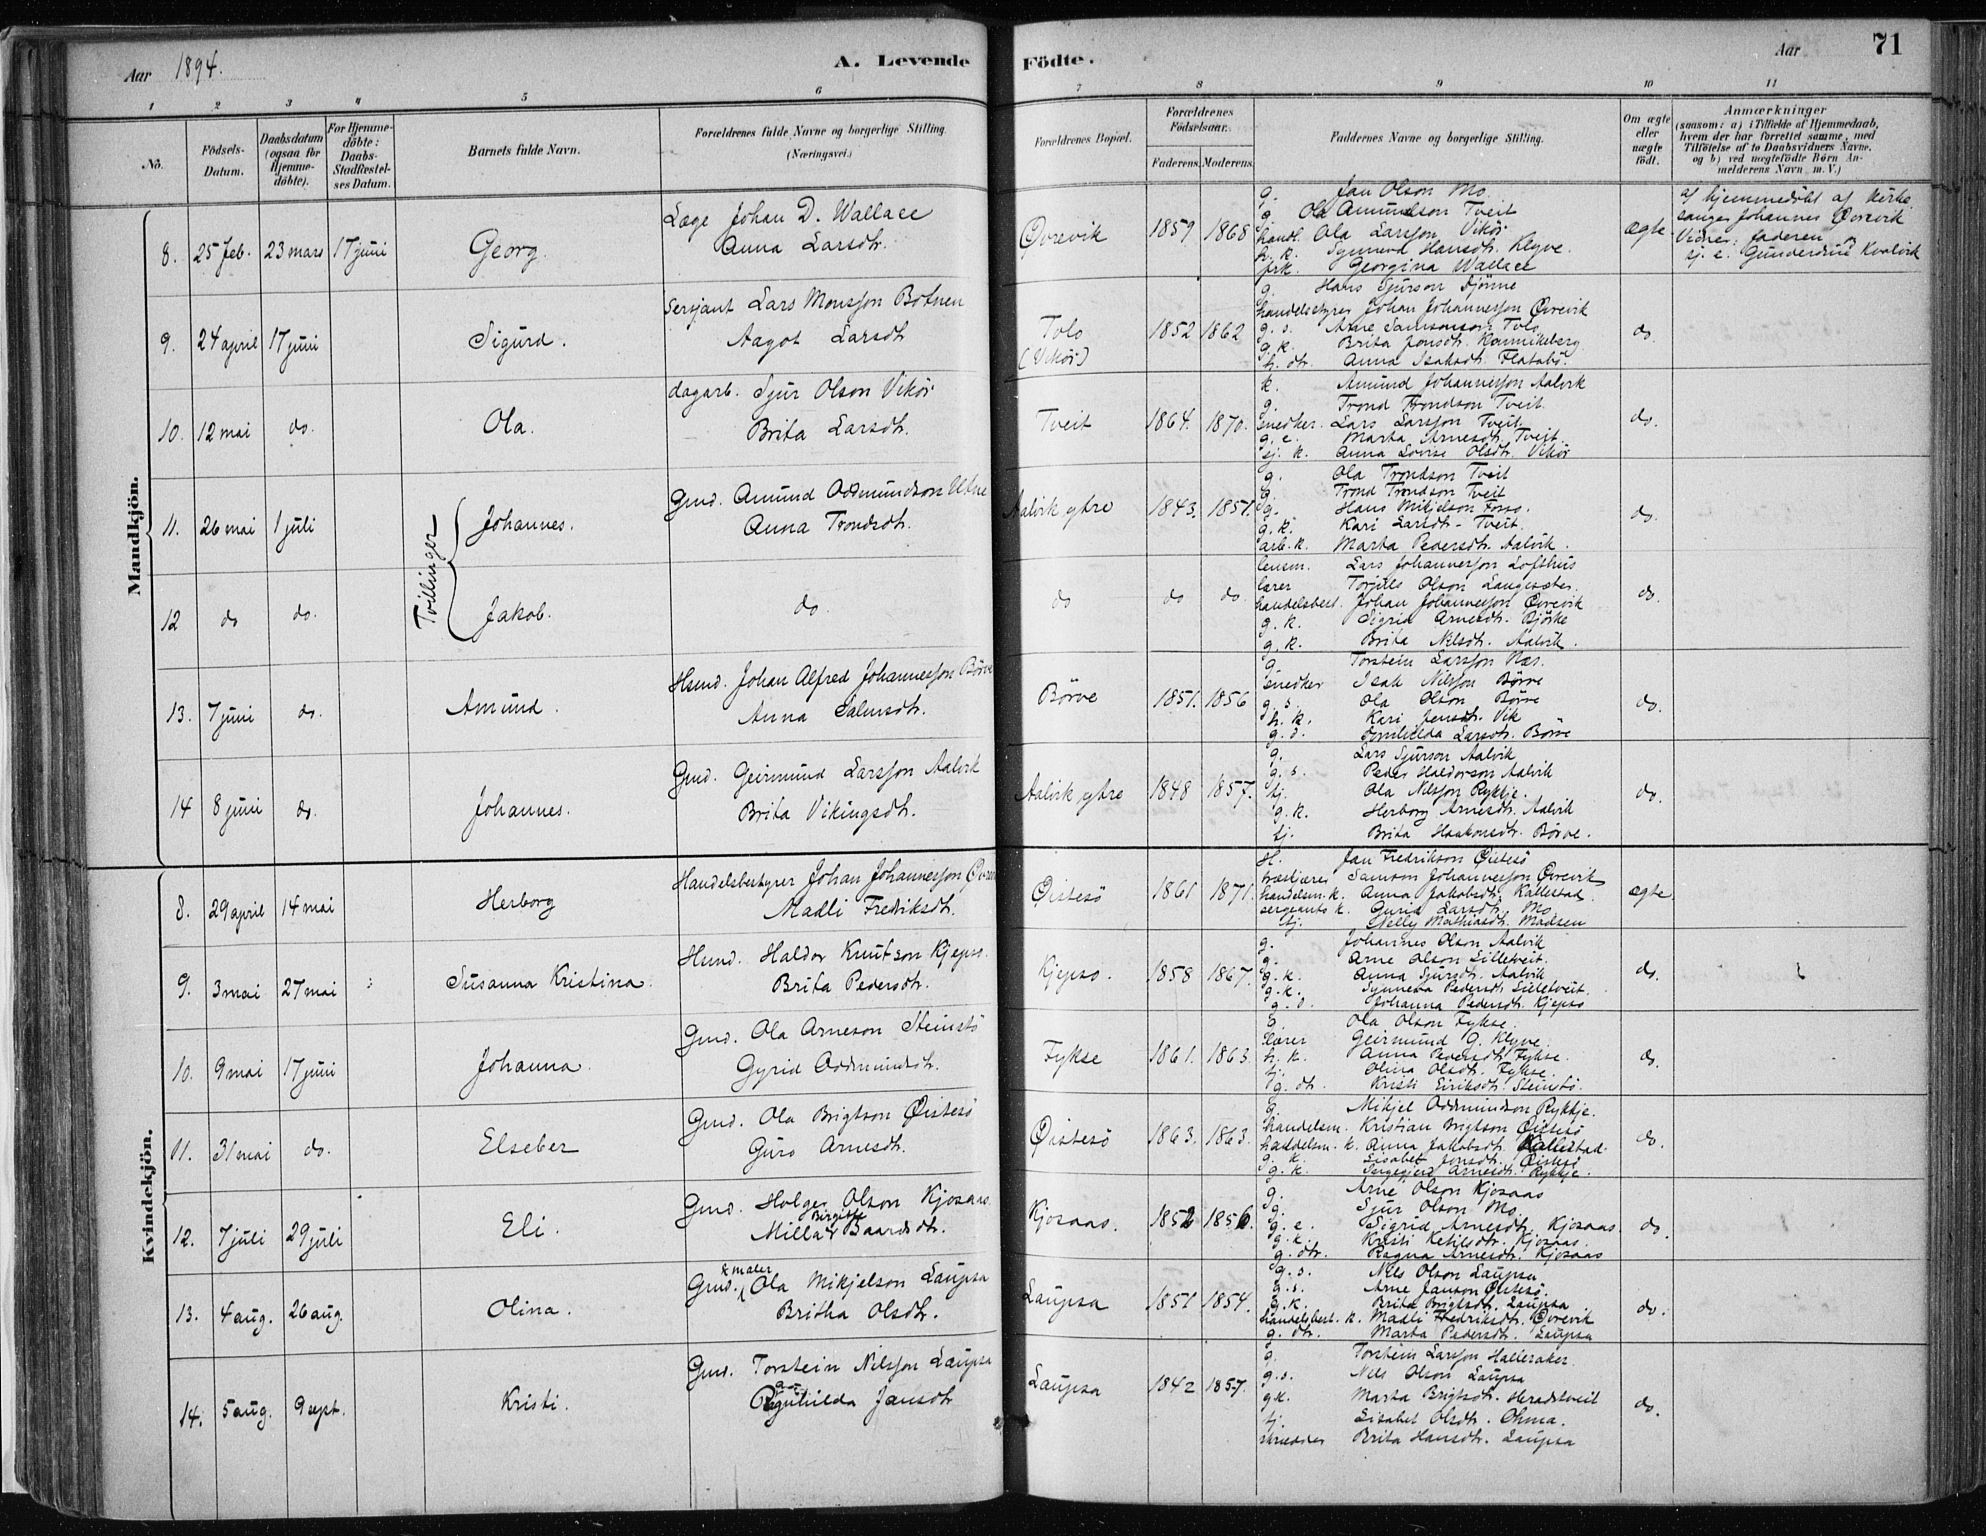 Aar 1894.
A. Levende Födte.
Aar
71
1 2 3 4 5 6 7 8 9 10 11
No.
Födsels-Datum.
Daabsdatum (ogsaa for Hjemme-döbte).
For Hjemme-döbte: Daabs-Stadfæstel-ses Datum.
Barnets fulde Navn.
Forældrenes fulde Navne og borgerlige Stilling. (Næringsvei.)
Forældrenes Bopæl.
Forældrenes Födselsaar.
Faderens. Moderens.
Faddernes Navne og borgerlige Stilling.
Om ægte eller uægte födt.
Anmærkninger (saasom: a) i Tilfælde af Hjemmedaab, hvem der har forrettet samme, med Tilföielse af to Daabsvidners Navne, og b) ved uægtefödte Börn An-melderens Navn, m. V.)
Mandkjön.
8. 25 feb. 23 mars 17 juni Georg.
Læge Johan D. Wallace
Anna Larsdtr.
Øvrevik 1859 1868
g. Jan Olson Mo.
g. Ola Amundson Tveit
handl. Ola Larsson Vikör
h. k. Synneva Hansdt. Klyve.
frk. Georgina Wallace
ægte.
af hjemmedöbt af kirke
sanger Johannes Øvrevik
Vidner: faderen og
Gunderdine Kvalvik
9. 24 april 17 juni Sigurd.
Serjant Lars Monsson Botnen
Aagot Larsdt
Tolo (Vikör) 1852 1862
g. Hans Sjurson Djönne
handelsstyrer Johan Johannesson Øvrevik
g. s. Arne Samsonson Tolo
g. k. Brita Jonsdt.
h. dtr. Anna Isaksdt. Flatabö.
do.
10. 12 mai do. Ola.
dagarb. Sjur Olson Vikör
Brita Larsdtr.
Tveit 1864. 1870.
k. Amund Johannesson Aalvik
g. Trond Trondson Tveit.
snedker. Lars Larsson Tveit
g. e. Marta Arnesdt. Tveit.
sj. k. Anna Lovise Olsdt. Vikör
do.
Tvillinger
11. 26 mai 1 juli Johannes.
Gmd. Amund Oddmundson Utne
Anna Trondsdtr.
Aalvik ytre 1843. 1851.
g. Ola Trondson Tveit
g. Trond Trondson Tveit
g. Hans Mikjelson Fosso.
g. k. Kari Larsdt. Tveit.
arb. k. Marta Pedersdtr. Aalvik.
do.
12 do do. Jakob.
do.
do do do.
lensm. Lars Johannesson Lofthus
lærer Torjuls Olson Langesæter
handelsbest. Johan Johannesson Øvrevik
g. k. Sigrid Arnesdt. Bjørke
g. k. Brita Nilsdt. Aalvik.
do.
13. 7 juni do. Amund.
Hsmd. Johan Alfred Johannesson Börve
Anna Salmsdtr.
Börve 1851. 1856
g. Torstein Larsson Næs.
snedker Isak Nilsson Börve
g. s. Ola Olson Börve
h. k. Kari Jonsdt. Vik
g. d. Larsdt. Börve
do.
14 8 juni do. Johannes.
Gmd. Geirmund Larsson Aalvik
Brita Vikingsdtr.
Aalvik ytre 1848 1857.
g. Lars Sjurson Aalvik
g. s. Peder Haldorson Aalvik
tj. Ola Nilsson Rykkje.
g. k. Herborg Arnesdt. Aalvik
tj. Brita Haakonsdt. Börve.
do.
Kvindekjön.
8. 29 april 14 mai Herborg
Handelsbestyrer Johan Johannesson
Madli Fredriksdt.
Øistesö 1861 1871.
H. Jan Fredrikson Øistesö
Samson Johannesson Øvrevik
handelsm. k. Anna Jakobsdt. Kallestad
sergeants k. Gurid Larsdt. Mo
tj. Nelly Mathiasdt. Madsen
ægte.
9. 3 mai 27 mai Susanna Kristina.
Hsmd. Haldor Knutson Kjepso.
Brita Pedersdtr.
Kjepso. 1858 1867.
g. Johannes Olson Aalvik
g. Arne Olson Lilletveit.
g. k. Anna Sjursdt. Aalvik
g. k. Synneva Pedersdt. Lilletveit.
g. d. Johanna Pedersdt. Kjepso
do.
10. 9 mai 17 juni Johanna.
Gmd. Ola Arneson Steinstö
Gyrid Oddmundsdt.
Fykse 1861. 1863.
g. Ola Olson Fykse.
lærer Geirmund G. Klyve.
h. k. Anna Pedersdt. Fykse.
tj. Olina Olsdt. Fykse.
g. dtr. Kristi Eiriksdt. Steinstö.
do.
11. 31 mai do. Elseber
Gmd. Ola Brigtson Øistesö
Guro Arnesdt.
Øistesö 1863. 1863.
g. Mikjel Oddmundson Rykkje.
handelsm. Kristian Brigtson Øistesö
handelsm. k. Anna Jakobsdt. Kallestad.
g. k. Lisabet Jonsdt. Øistesö
g. k. Arnesdt. Rykkje.
do.
12. 7 juli 29 juli Eli.
Gmd. Holger Olson Kjosaas.
Milla Birgitte Baardsdtr.
Kjosaas. 1852 1856.
g. Arne Olson Kjosaas
g. Sjur Olson Mo.
g. e. Sigrid Arnesdt. Kjosaas.
g. k. Kristi Ketilsdt. Kjosaas.
g. dtr. Ragna Arnesdt. Kjosaas
do.
13. 4 aug. 26 aug. Olina.
Gmd. & maler Ola Mikjelson Laupsa
Britha Olsdtr.
Laupsa 1851 1854.
g. s. Nils Olson Laupsa
g. s. Arne Janson Øistesö.
g. k. Brita Brigtsdt. Laupsa
handelsbest. k. Madli Fredriksdt. Øvrevik
g. dtr. Marta Pedersdt. Laupsa
do.
14. 5 aug. 9 sept. Kristi.
Gmd. Torstein Nilsson Laupsa
Ragnhilda Jansdtr
Laupsa 1842 1857.
g. Torstein Larsson Halleraker.
g. s. Nils Olson Laupsa
g k. Marta Brigtsdt. Heradstveit
tj. Lisabet Olsdt. Ohma.
skrædder Brita Hansdt. Laupsa
do.